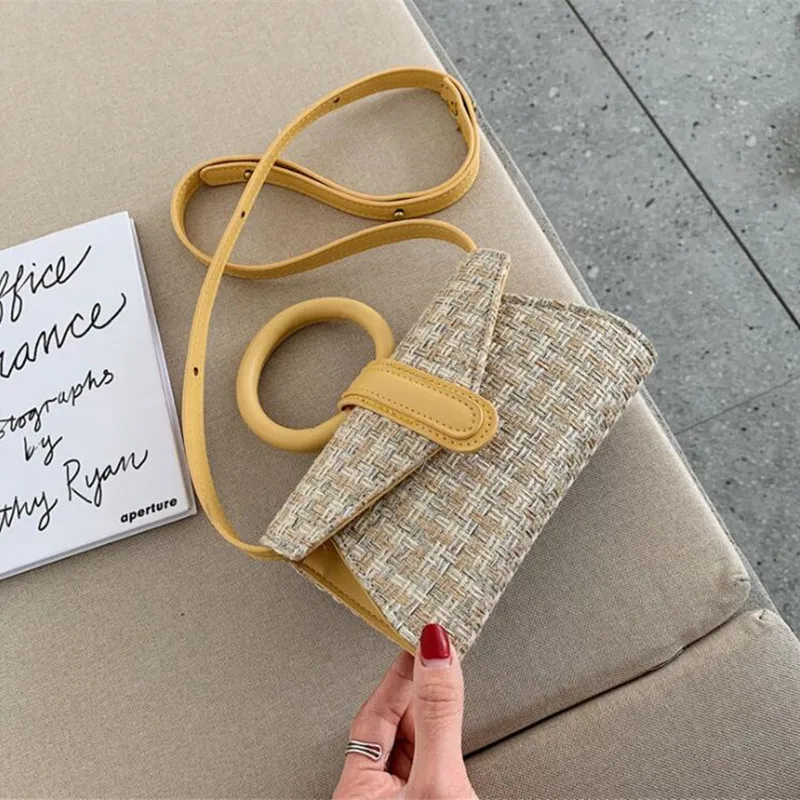 ffice
rance
otographs
by
thy Ryan
aperture